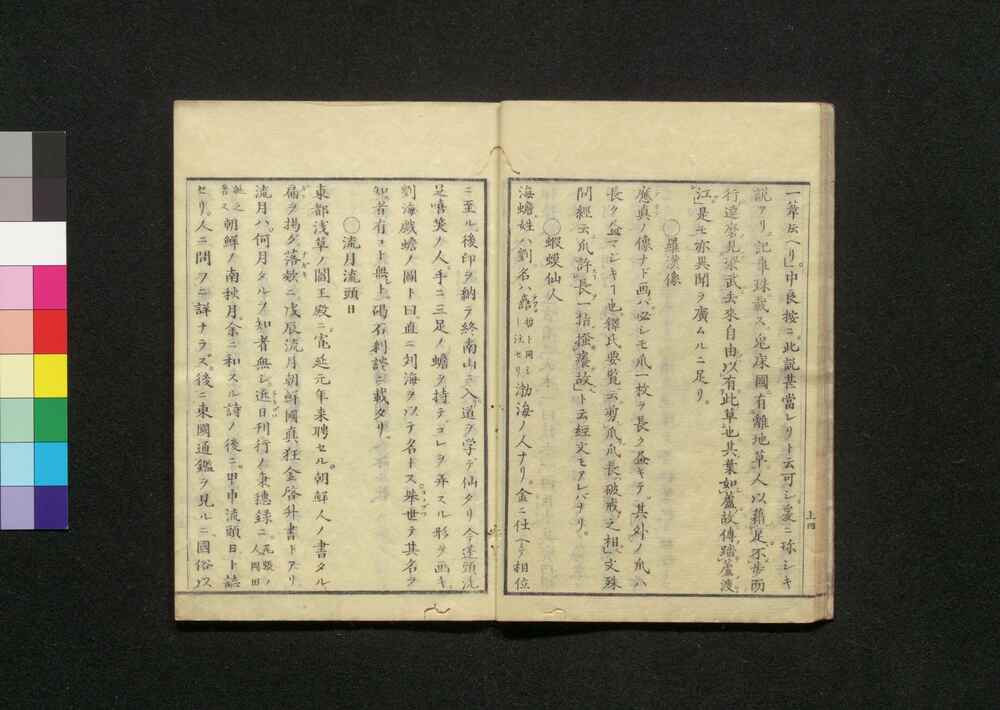 一葦伝ヘリ中良按ニ此説甚當レリト云可シ爰ニ珎シキ
説アリ記事珠載ス鬼床國有離地草人以藉足不歩而
行達磨見梁武去來自由以有此草也其葉如蘆故傳踏蘆渡
江是モ亦異聞ヲ廣ムルニ足リ
○羅漢像
應真ノ像ナド画バ必シモ爪一枚ヲ長ク画キテ其外ノ爪ハ
長ク画マジキヿ也釋氏要覧云剪爪爪長破戒之相文殊
問經云爪許長一指搔癢故ト云経文モアレバナリ
○蝦蟆仙人
海蟾姓ハ劉名ハ嚞哲ト同ジト注セリ渤海ノ人ナリ金ニ仕ヘテ相位
上四
ニ至ル後印ヲ納テ終南山ニ入道ヲ学デ仙タリ今蓬頭洗
足嘻笑ノ人手ニ三足ノ蟾ヲ持テコレヲ弄スル形ヲ画キ
劉海戯蟾ノ圖ト曰直ニ刘海ヲ以テ名トス挙世テ其名ヲ
知者有コト無ト碣石剩談ニ載タリ
○流月流頭日
東都浅草ノ閻王殿ニ寛延元年来聘セル朝鮮人ノ書タル
扁ヲ揚グ落欵ニ戊辰流月朝鮮國真狂金啓升書トアリ
流月ハ何月タルヲ知者無シ近日刊行ノ東穗録ニ花張ノ人岡田
挺之著ス朝鮮ノ南秋月余ニ和スル詩ノ後ニ甲申流頭日ト誌
セリ人ニ問フニ詳ナラズ後ニ東國通鑑ヲ見ルニ國俗以